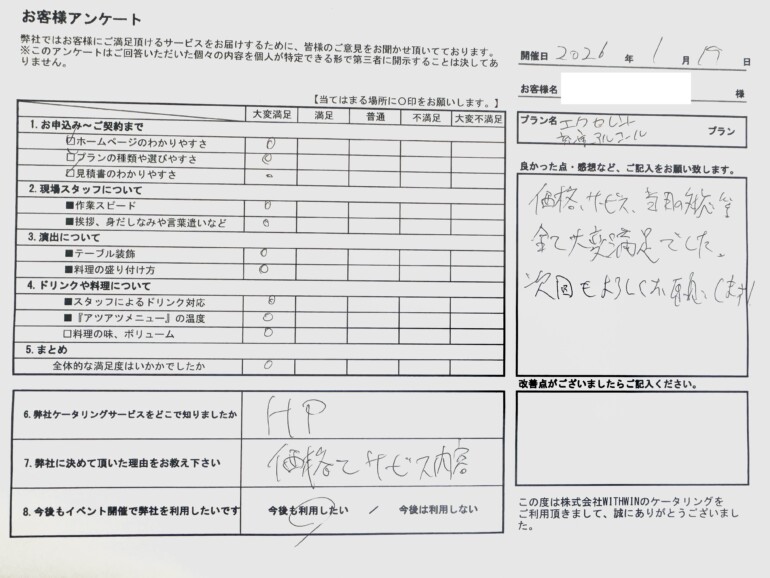 お客様アンケート
弊社ではお客様にご満足頂けるサービスをお届けするために、皆様のご意見をお聞かせ頂いてております。
※このアンケートはご回答いただいた個々の内容を個人が特定できる形で第三者に開示することは決してあ
りません。
開催日 2026 年 1 月 19 日
お客様名 様
プラン名 エクセレント
アルコール プラン
【当てはまる場所に〇印をお願いします。】
大変満足 満足 普通 不満足 大変不満足
1.お申込み～ご契約まで
□ホームページのわかりやすさ ○
□プランの種類や選びやすさ ○
□見積書のわかりやすさ ○
2.現場スタッフについて
■作業スピード ○
■挨拶、身だしなみや言葉遣いなど ○
3.演出について
■テーブル装飾 ○
■料理の盛り付け方 ○
4.ドリンクや料理について
■スタッフによるドリンク対応 ○
■『アツアツメニュー』の温度 ○
□料理の味、ボリューム ○
5.まとめ
全体的な満足度はいかかでしたか ○
6.弊社ケータリングサービスをどこで知りましたか HP
7.弊社に決めて頂いた理由をお教え下さい 価格とサービス内容
8.今後もイベント開催で弊社を利用したいです 今後も利用したい / 今後は利用しない
良かった点・感想など、ご記入をお願い致します。
価格、サービス、当日の対応等
全て大変満足でした。
次回もよろしくお願いします
改善点がございましたらご記入ください。
この度は株式会社WITHWINのケータリングを
ご利用頂きまして、誠にありがとうございまし
た。